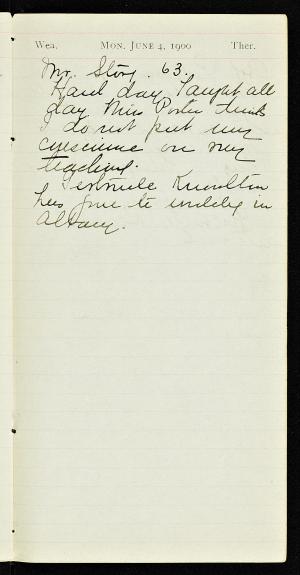 Wea. MON. JUNE 4, 1900 Ther.
Mr. Story. 63.
Hard day. Taught all
day Miss Porter thinks
I do not put my
on my
teaching.
Gertrude Knowlton
has gone to wedding in
Albany.